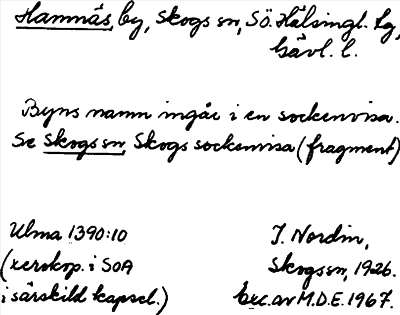 Hamnäs, by, Skogs sn, Sö. Hälsingl. tg,
Gävl. l.
Byns namn ingår i en sockenvisa.
Se Skogs sn, Skogs sockenvisa (fragment)
Ulma 1390:10
(xerokop. i SOA
i särskild kapsel.)
J. Nordin,
Skogs sn, 1926.
Exc. av M.D.E. 1967.